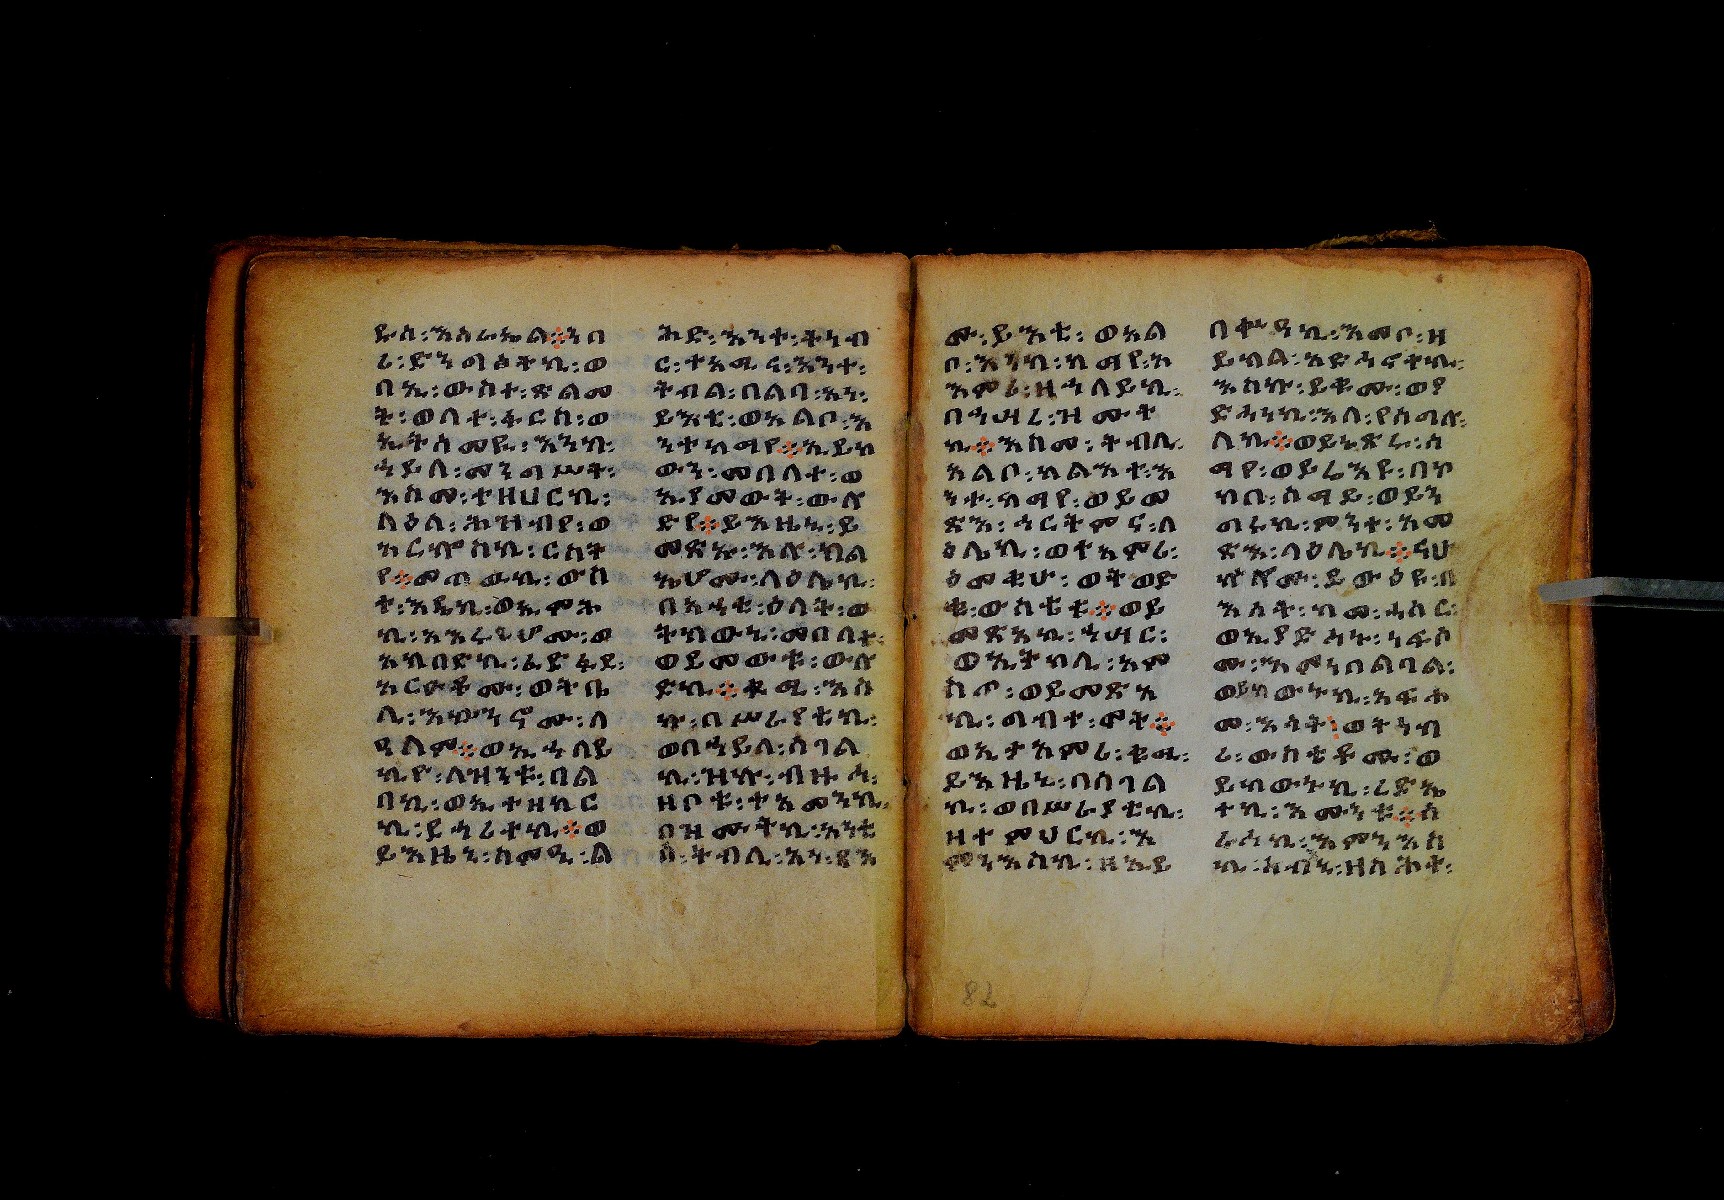 ዩስ፡እስራኤል፨ንበ
ሪ፡ድንግልትኪ፡ወ
በኢ፡ውስተ፡ጽልመ
ት፡ወለተ፡ፋርስ፡ወ
ኢትሰመዪ፡እንከ፡
ኀይለ፡መንግሥት፡
እስመ፡ተዘሀርኪ፡
ላዕለ፡ሕዝብየ፡ወ
አርኰስኪ፡ርስት
የ፨መጠውኪ፡ውስ
ተ፡እዴኪ፡ወኢምሕ
ኪ፡አእሩጊሆሙ፡ወ
አክበድኪ፡ፈድፋደ፡
አርዑቶሙ፡ወትቤ
ሊ፡ለ
ዓለም፨ወኢኀለይ
ኪዮ፡ለዝንቱ፡በል
በኪ፡ወኢተዘከር
ኪ፡ደኃሪተኪ፨ወ
ይእዜኒ፡ስምዒ፡ል
ሕድ፡እንተ፡ትነብ
ር፡ተአሚና፡እንተ፡
ትብል፡በልባ፡አነ፡
ይእቲ፡ወአልቦ፡እ
ንተ፡ከማየ፨ኢይከ
ውን፡መበለተ፡ወ
ኢየመውት፡ውሉ
ድየ፨ይእዜኒ፡ይ
መጽኡ፡እሉ፡ክል
ኤሆሙ፡ላዕሌኪ፡
በአሐቲ፡ዕለት፡ወ
ትከውኒ፡መበለተ፡
ወይመውቱ፡ውሉ
ድኪ፨ቁሚ፡እስ
ኩ፡በሥራየቲኪ፡
ወበኀይለ፡ስገል
ኪ፡ዝኩ፡ብዙኅ፡
ዘቦቱ፡ተአመንኪ፡
በዝሙትኪ፡አንቲ
ሰ፡ትብሊ፡አነ፡ይእ
ሙ፡ይእቲ፡ወአል
ቦ፡እንከ፡ከማየ፡አ
እምሪ፡ዘኀለይኪ፡
በኀሣረ፡ዝሙት
ኪ፨እስመ፡ትብሊ፡
አልቦ፡ካልእተ፡እ
ንተ፡ከማየ፡ወይመ
ጽእ፡ኃርትምና፡ላ
ዕሌኪ፡ወተአምሪ፡
ዕመቂሁ፡ወትወድ
ቂ፡ውስቴቱ፨ወይ
መጽአኪ፡ኀሣር፡
ወኢትክሊ፡አም
ስጦ፡ወይመጽአ
ኪ፡ግብተ፡ሞት፨
ወኢተአምሪ፡ቁሚ፡
ይእዜኒ፡በስገል
ኪ፡ወበሥራያቲኪ፡
ዘተምህርኪ፡እ
ምንእስኪ፡ዘእይ
በቍዓኪ፡እመቦ፡ዘ
ይክል፡አድኅኖትኪ፡
እስኩ፡ይቁሙ፡ወያ
ድኅኑኪ፡እለ፡የሰግሉ፡
ለኪ፨ወይነጽሩ፡ሰ
ማየ፡ወይሬእዩ፡በከ
ዋክብተ፡ሰማይ፡ወይን
ግሩኪ፡ምንተ፡እመ
ጽእ፡ላዕሌኪ፨ናሁ
ኵሎሙ፡ይውዕዩ፡በ
እሳት፡ከመ፡ሓሰር፡
ወኢያድኅኑ፡ነፍሶ
ሙ፡እምነበልባል፡
ወይከውንኪ፡አፍሓ
መ፡እሳት፡ወትነብ
ሪ፡ውስቴቶሙ፡ወ
ይከውንኪ፡ረድኤ
ተኪ፡እሙንቱ፨ስ
ራሕኪ፡እምንእስ
ኪ፡ዘስሕተ፡
82